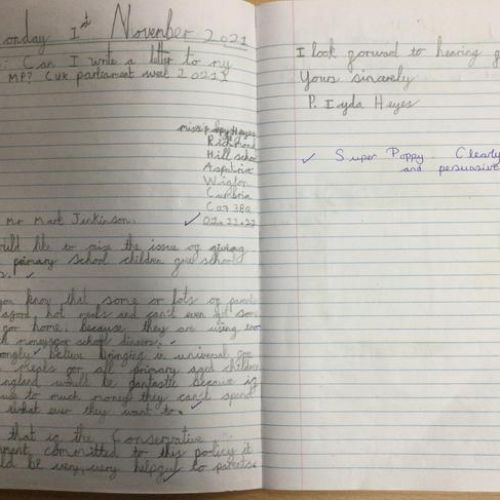 onday 1st November 2021
: Can I write a letter to my
MP? (UK parliament week 2021)
miss poppy Heyes
Richmond
Hill school
Aspatria
Wigton
Cumbria
02.11.22
Mr Mark Jenkinson.
uld like to raise the issue of giving
primary school children free school
s.
you know that some or lots of
agord hot meals and can't even get
for home. Because they are using
money for school dinners.
ongly believe bringing in universal
meals for all primary aged children
England would be fantastic because if
use to much money they can't spend
what ever they want to.
that is the Conservative
ment committed to this policy it
ld be very, very helpful to parents
I look forward to hearing
Yours sincerely
P. Iyda Heyes
Super Poppy Clearly
and persuasive